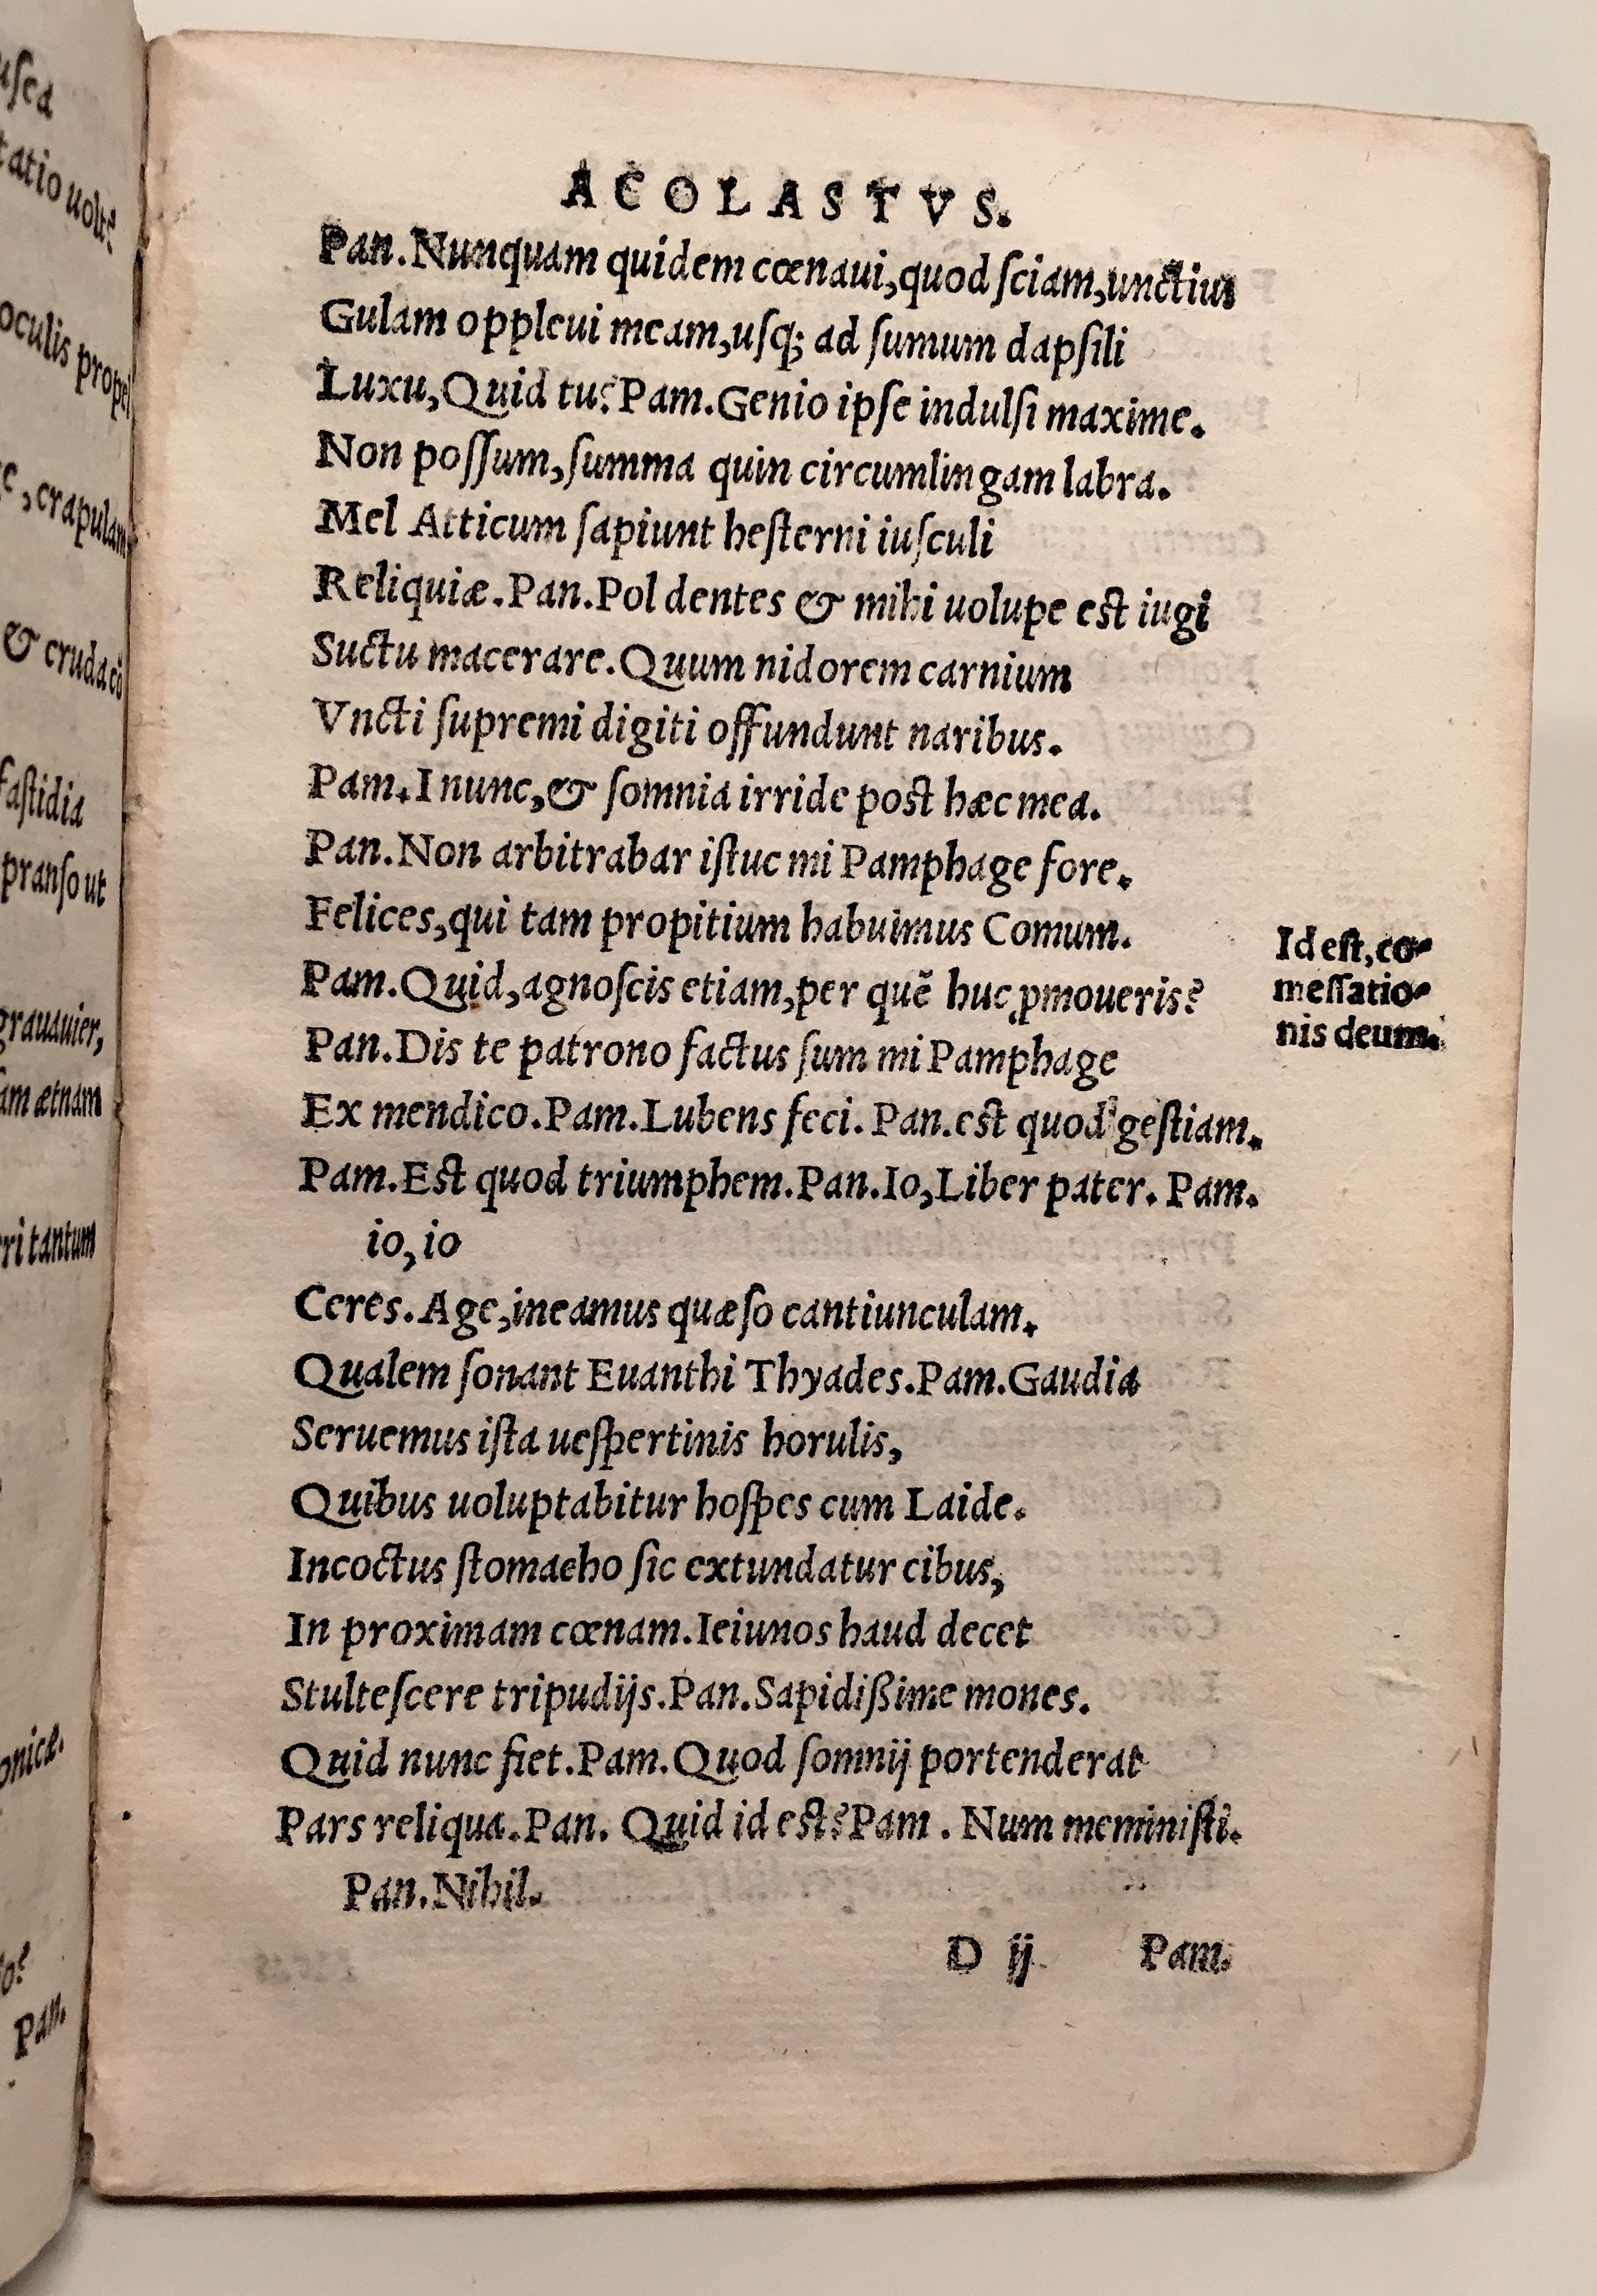 uſea
tatio uolt?
oculis propel
c, crapulam
& cruda cō
faſtidia
pranſo ut
grauauier,
am ætnam
ri tantum
onicæ.
to?
Pan.
ACOLASTVS.
Pan. Nunquam quidem cœnaui, quod ſciam, unctius
Gulam oppleui meam, uſq; ad ſumum dapſili
Luxu, Quid tu? Pam. Genio ipſe indulſi maxime.
Non poſſum, ſumma quin circumlingam labra.
Mel Atticum ſapiunt heſterni iuſculi
Reliquiæ. Pan. Pol dentes & mihi uolupe est iugi
Suctu macerare. Quum nidorem carnium
Vncti ſupremi digiti offundunt naribus.
Pam. I nunc, & ſomnia irride post hæc mea.
Pan. Non arbitrabar iſtuc mi Pamphage fore.
Felices, qui tam propitium habuimus Comum.
Id eſt, co-
meſſatio-
nis deum.
Pam. Quid, agnoſcis etiam, per quē huc ꝓmoueris?
Pan. Dis te patrono factus ſum mi Pamphage
Ex mendico. Pam. Lubens feci. Pan. est quod geſtiam.
Pam. Est quod triumphem. Pan. Io, Liber pater. Pam.
io, io
Ceres. Age, ineamus quæſo cantiunculam.
Qualem ſonant Euanthi Thyades. Pam. Gaudia
Seruemus iſta ueſpertinis horulis,
Quibus uoluptabitur hoſpes cum Laide.
Incoctus ſtomaeho ſic extundatur cibus,
In proximam cœnam. Ieiunos haud decet
Stulteſcere tripudijs. Pan. Sapidißime mones.
Quid nunc fiet. Pam. Quod ſomnij portenderat
Pars reliqua. Pan. Quid id est? Pam. Num meminiſti.
Pan. Nihil.
D ij Pam.